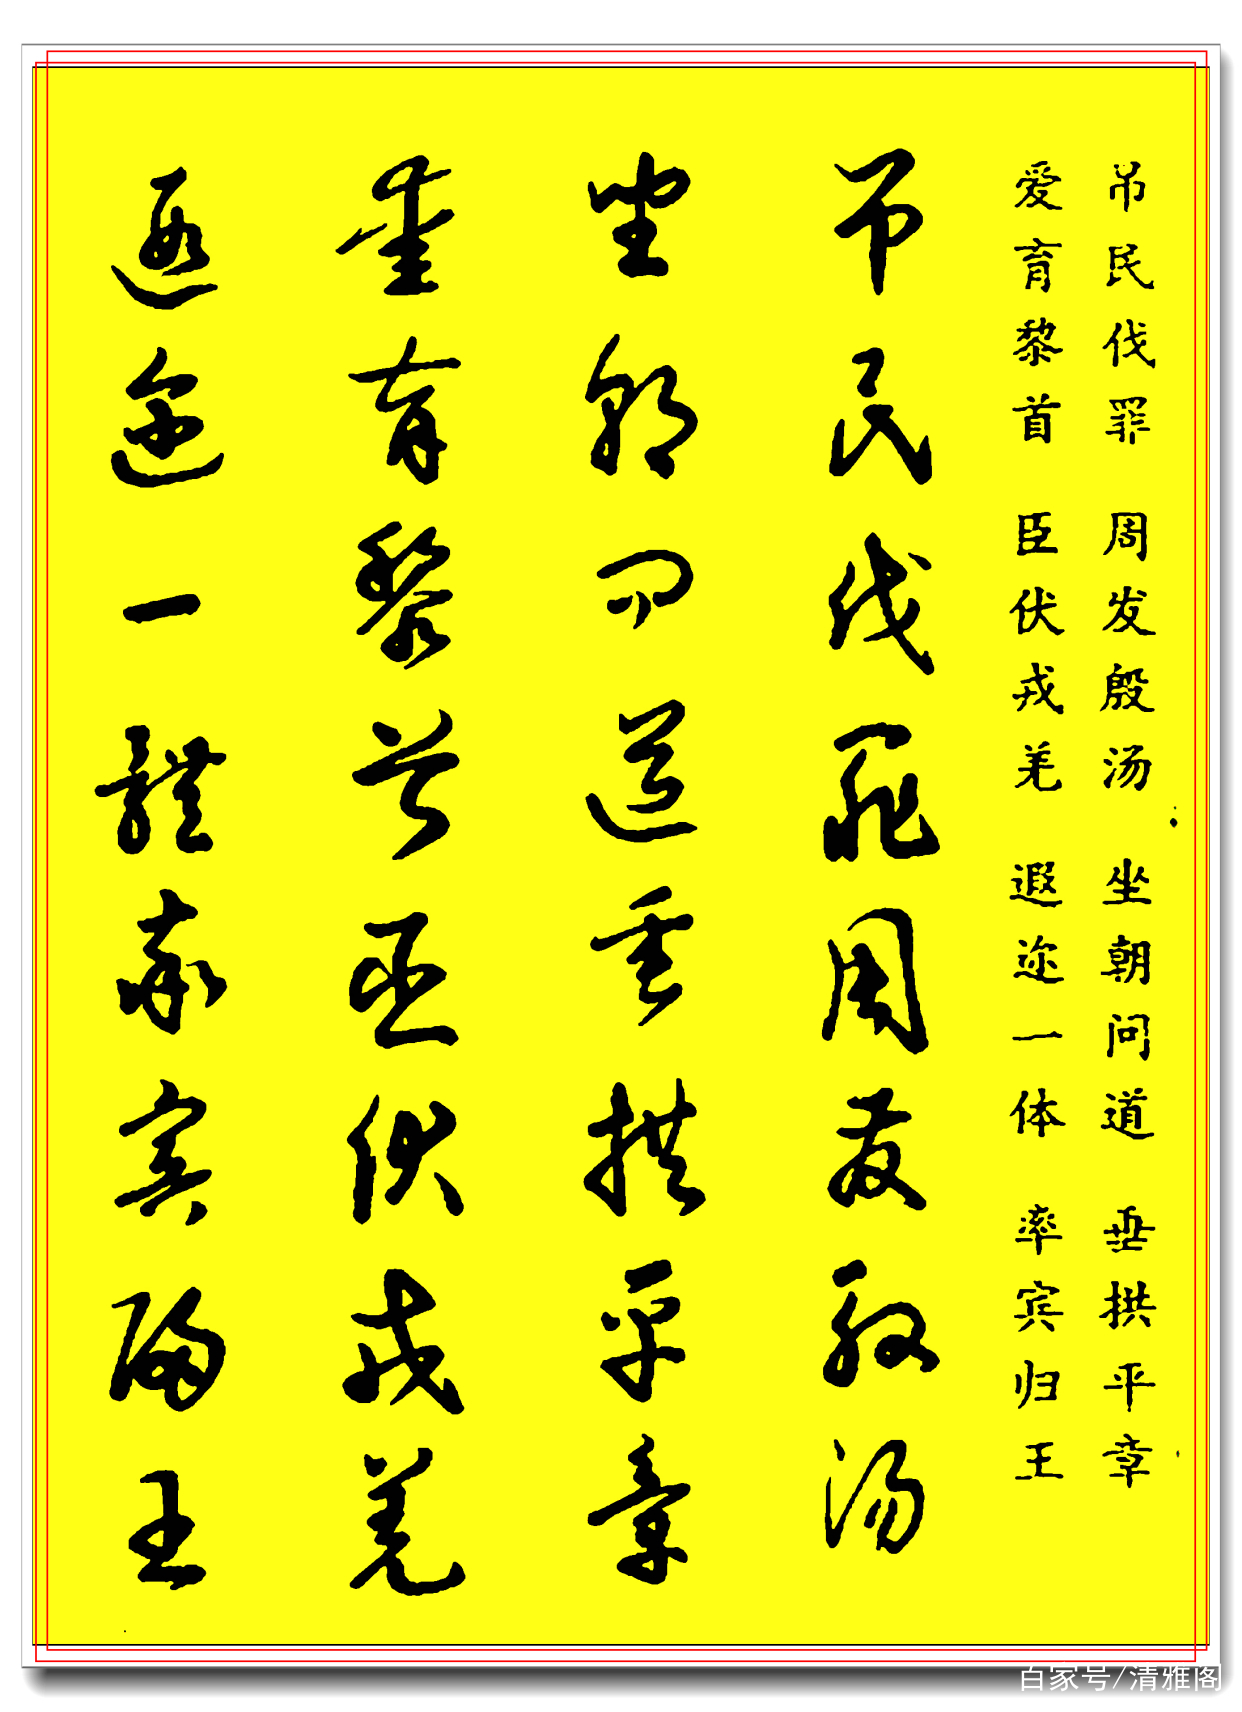 吊民伐罪 周发殷汤 坐朝问道 垂拱平章
爱育黎首 臣伏戎羌 遐迩一体 率宾归王
吊民伐罪周发殷汤
坐朝问道垂拱平章
爱育黎首臣伏戎羌
遐迩一體率宾歸王
百家号/清雅阁